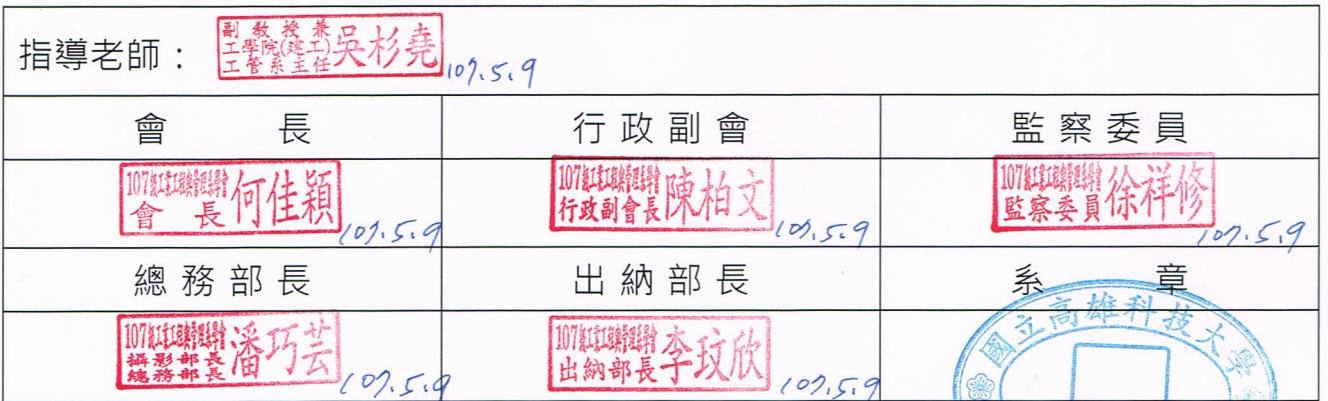 指導老師：
副教授兼
工學院(建工)
工管系主任
吳杉堯
107.5.9
會長 行政副會 監察委員
107級工業工程與管理系學會
會長
何佳穎
107.5.9
107級工業工程與管理系學會
行政副會長
陳柏文
107.5.9
107級工業工程與管理系學會
監察委員
徐祥修
107.5.9
總務部長 出納部長 系章
107級工業工程與管理系學會
攝影部長
總務部長
潘巧芸
107.5.9
107級工業工程與管理系學會
出納部長
李玟欣
107.5.9
國立高雄科技大學